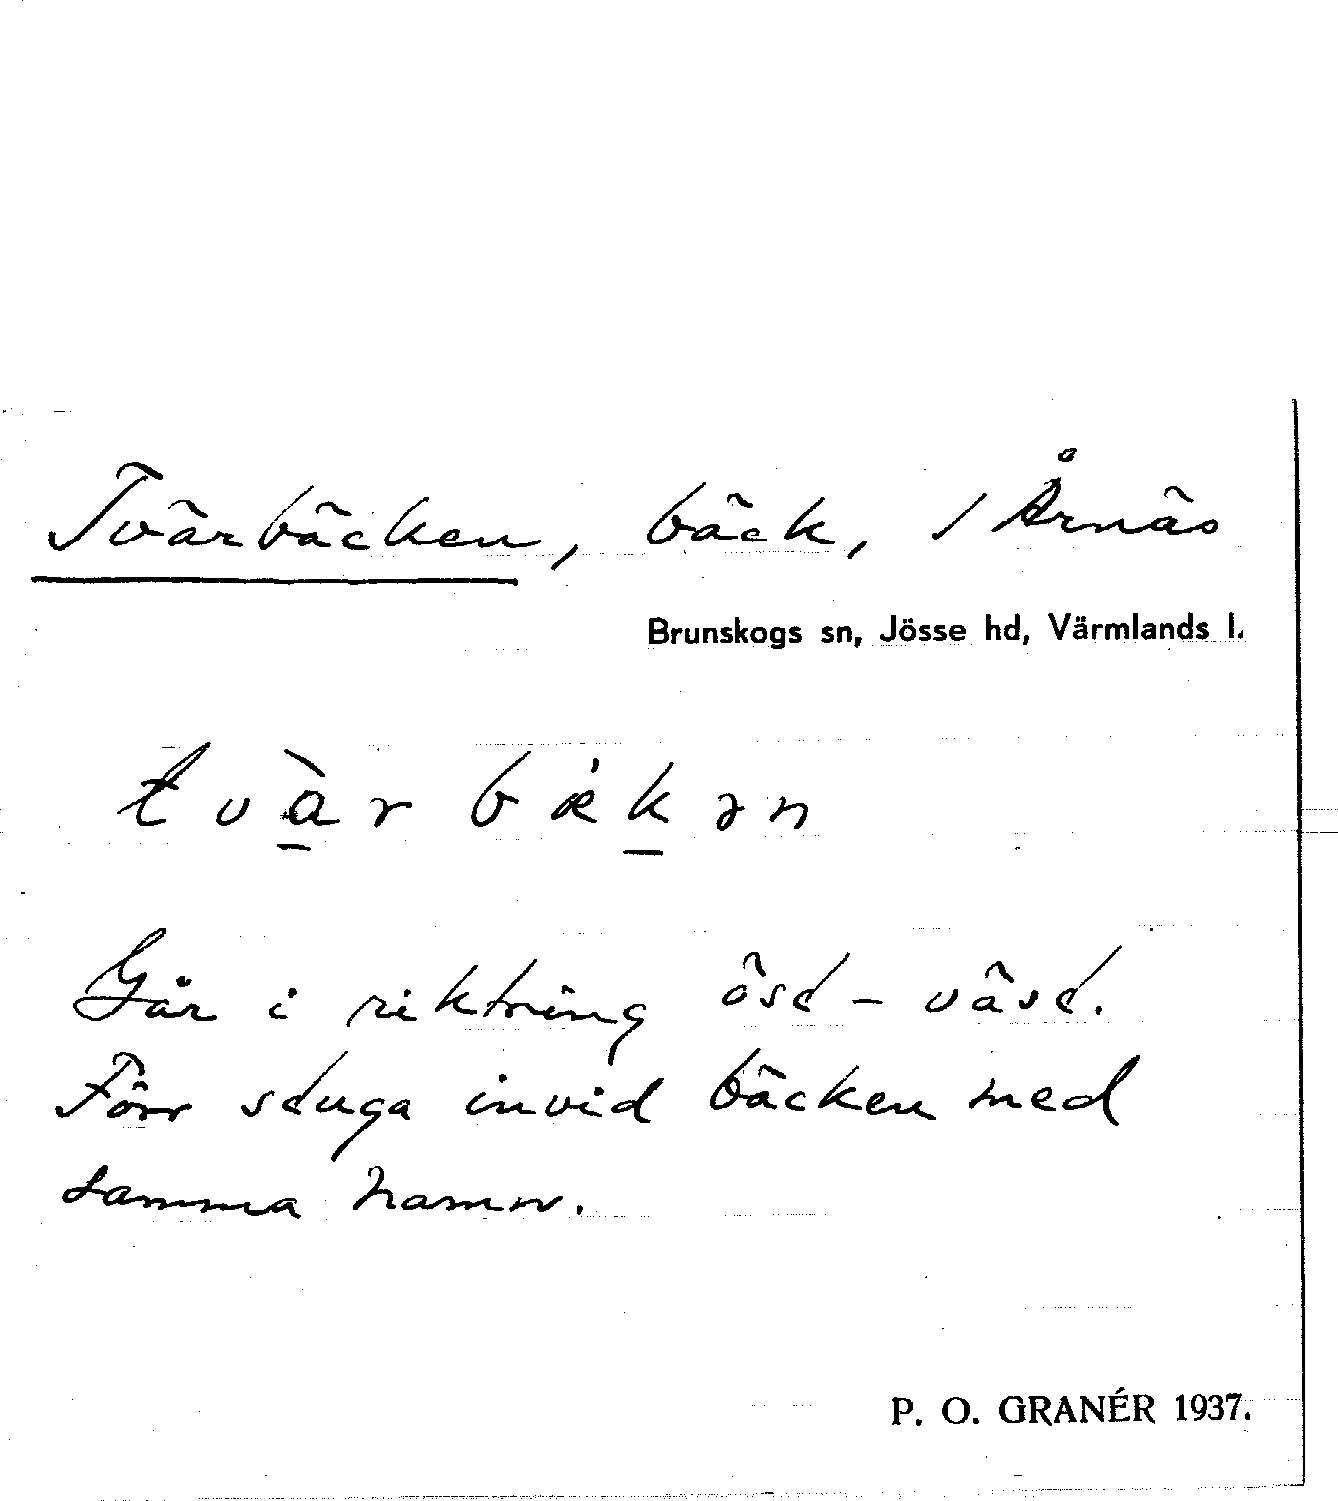 Tvärbäcken, bäck, / Årnäs
Brunskogs sn, Jösse hd, Värmlands l.
tvàr bǽkən
Går i riktning öst – väst.
Förr stuga invid bäcken med
samma namn.
P. O. GRANÉR 1937.